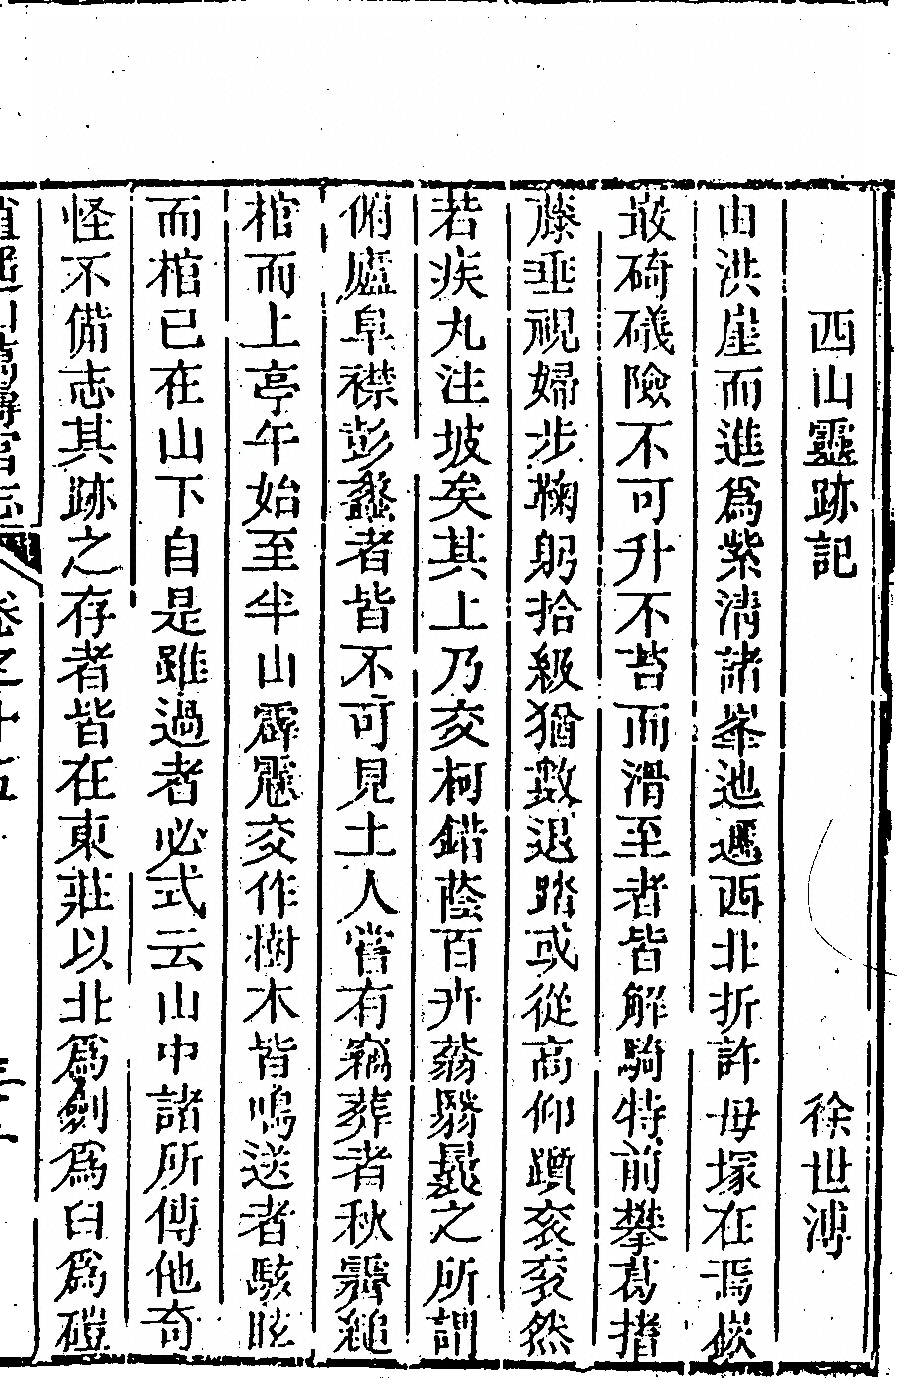 西山靈跡記 徐世溥
由洪崖而進爲紫清諸峯迆邐西北折許母塚在焉嵚
巌碕礒險不可升不苔而滑至者皆解騎特前攀葛揩
藤垂視婦步鞠躬拾級猶數退踏或從高仰躓衮衮然
若疾丸注坡矣其上乃交柯錯蔭百卉蓊翳曩之所謂
俯廬阜襟彭蠡者皆不可見土人嘗有竊葬者秋霽縋
棺而上亭午始至半山霹靂交作樹木皆鳴送者駭眩
而棺已在山下自是雖過者必式云山中諸所傳他奇
怪不備志其跡之存者皆在東莊以北爲劍爲臼爲磑
逍遙山萬壽宮志 卷之十五